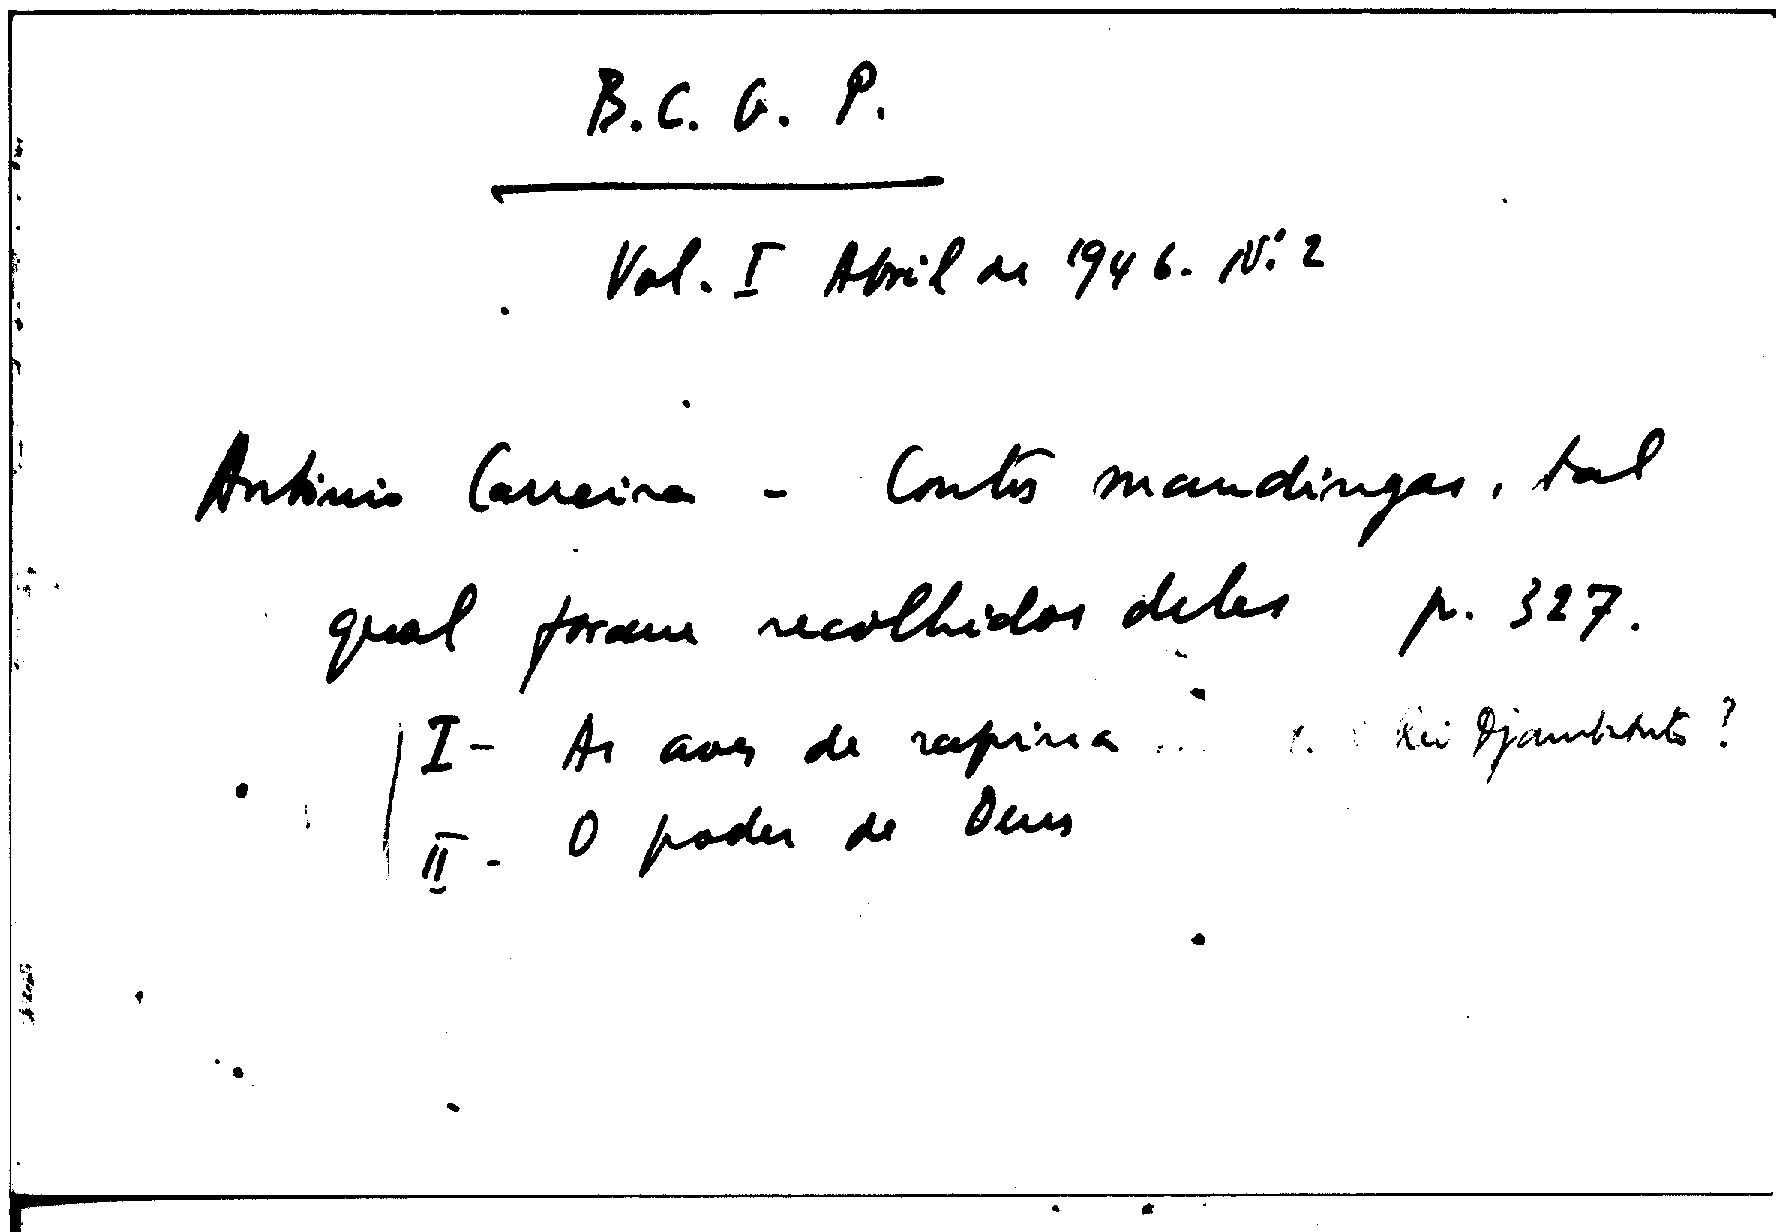 B.C.G.P.
Vol. I Abril de 1946. N.º 2
António Carreira - Contos mandingas, tal
qual foram recolhidos deles p. 327.
I - As aves de rapina ... Rei ?
II - O poder de Deus